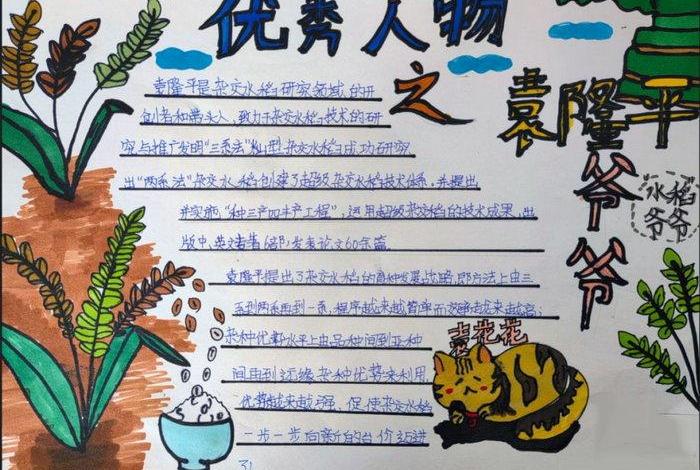 优秀人物
之
袁隆平
爷爷
水稻
爷爷
袁隆平是杂交水稻研究领域的开
创者和带头人，致力于杂交水稻技术的研
究与推广发明"三系法"籼型杂交水稻成功研究
出"两系法"杂交水稻创建了超级杂交水稻技术体系，并提出
并实施"种三产四丰产工程"，运用超级杂交稻的技术成果，出
版中、英文专著6部，发表论文60余篇
袁隆平提出了杂交水稻的育种发展战略，即方法上由三
系到两系再到一系，程序越来越简单而效率越来越高；
杂种优势水平上由品种间到亚种
间再到远缘杂种优势来利用
优势越来越强，促使杂交水稻
一步一步向新的台阶迈进
袁花花